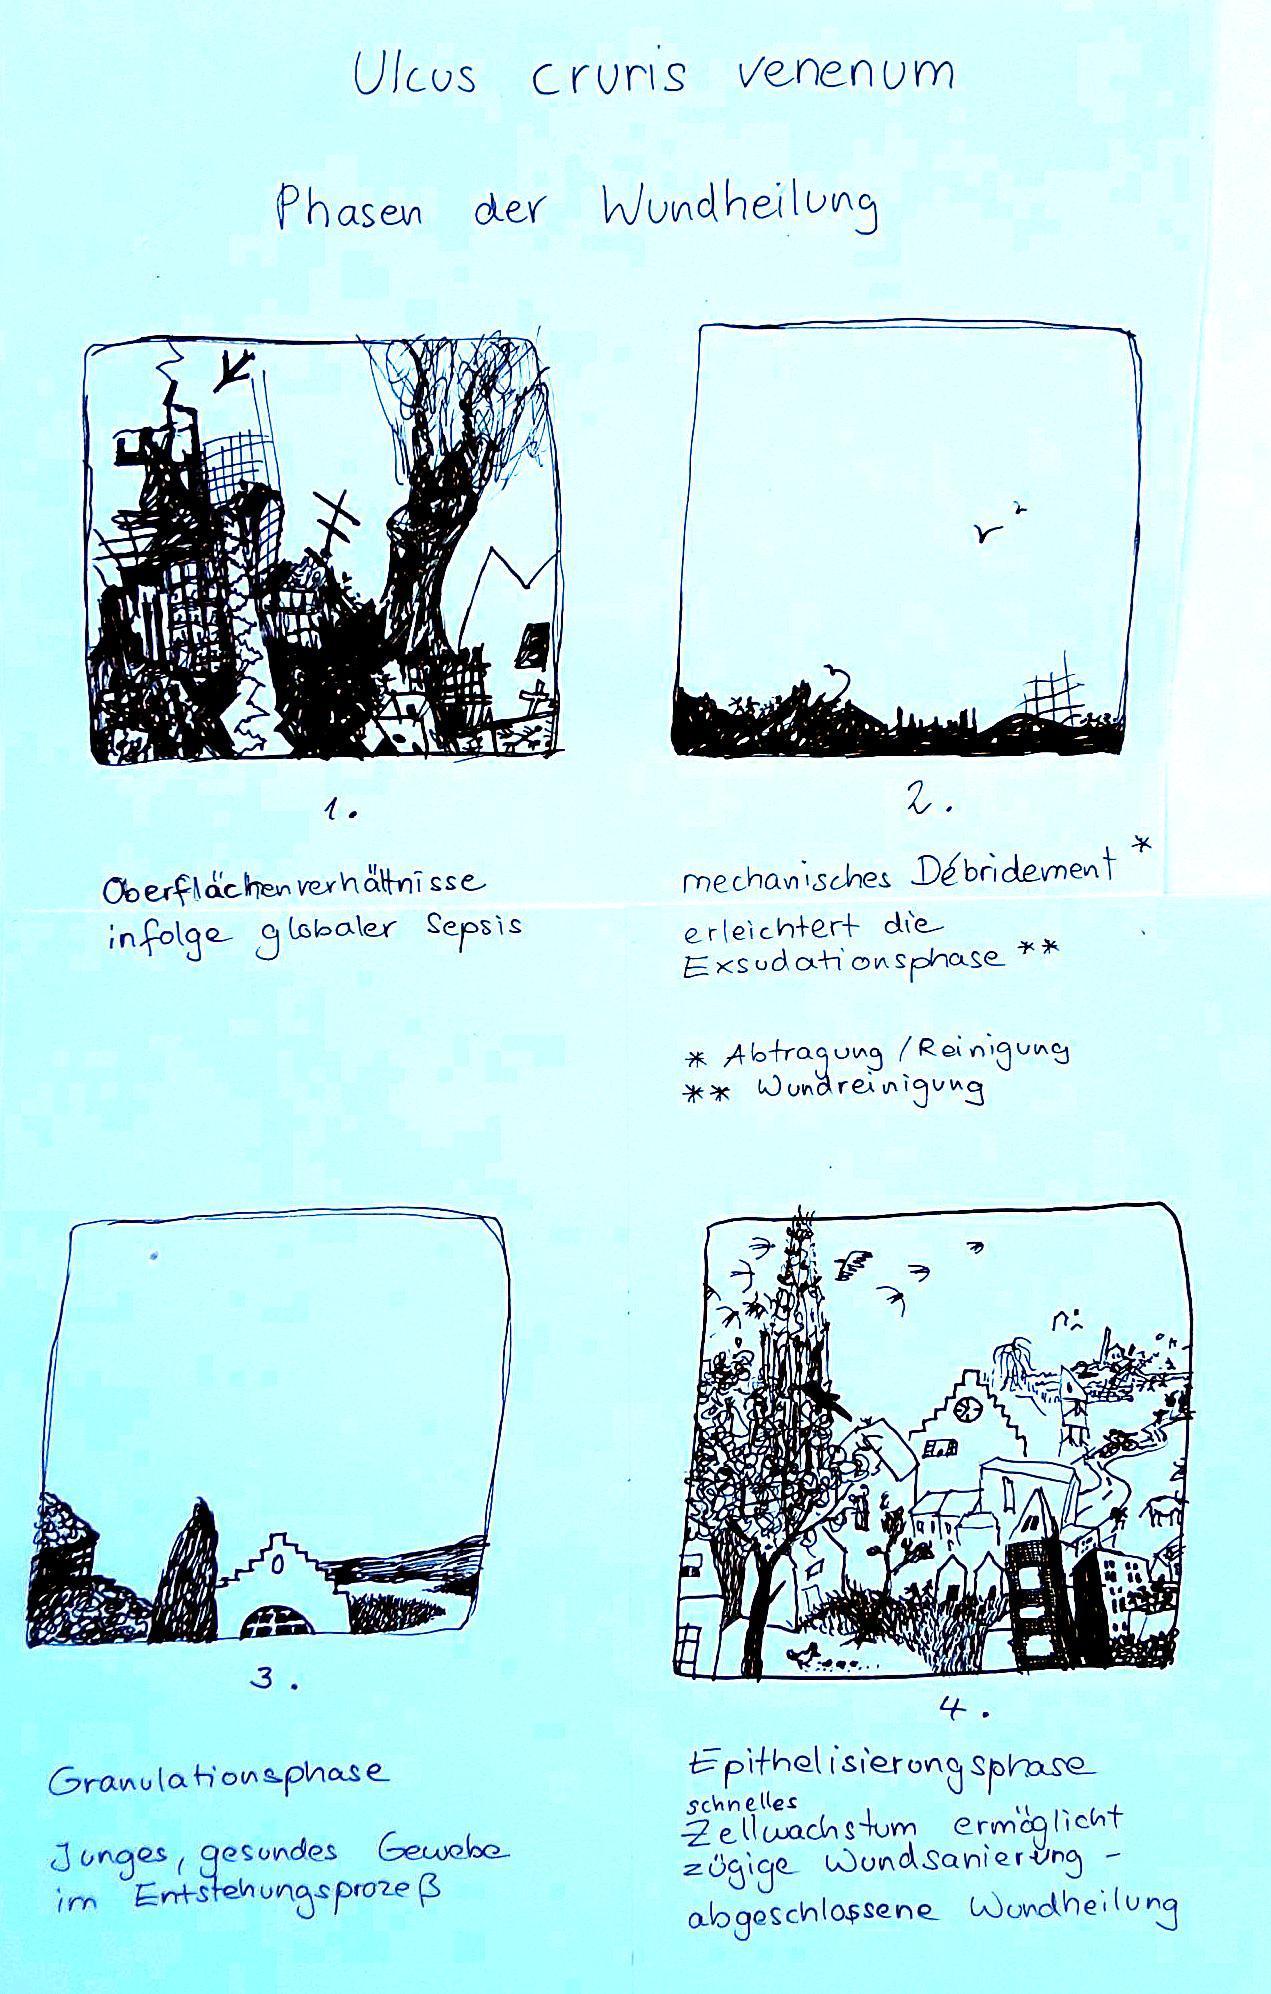 Ulcus cruris venenum
Phasen der Wundheilung
1.
Oberflächenverhältnisse
infolge globaler Sepsis
2.
mechanisches Débridement *
erleichtert die
Exsudationsphase **
* Abtragung / Reinigung
** Wundreinigung
3.
Granulationsphase
Junges, gesundes Gewebe
im Entstehungsprozeß
4.
Epithelisierungsphase
schnelles
Zellwachstum ermöglicht
zügige Wundsanierung -
abgeschlossene Wundheilung